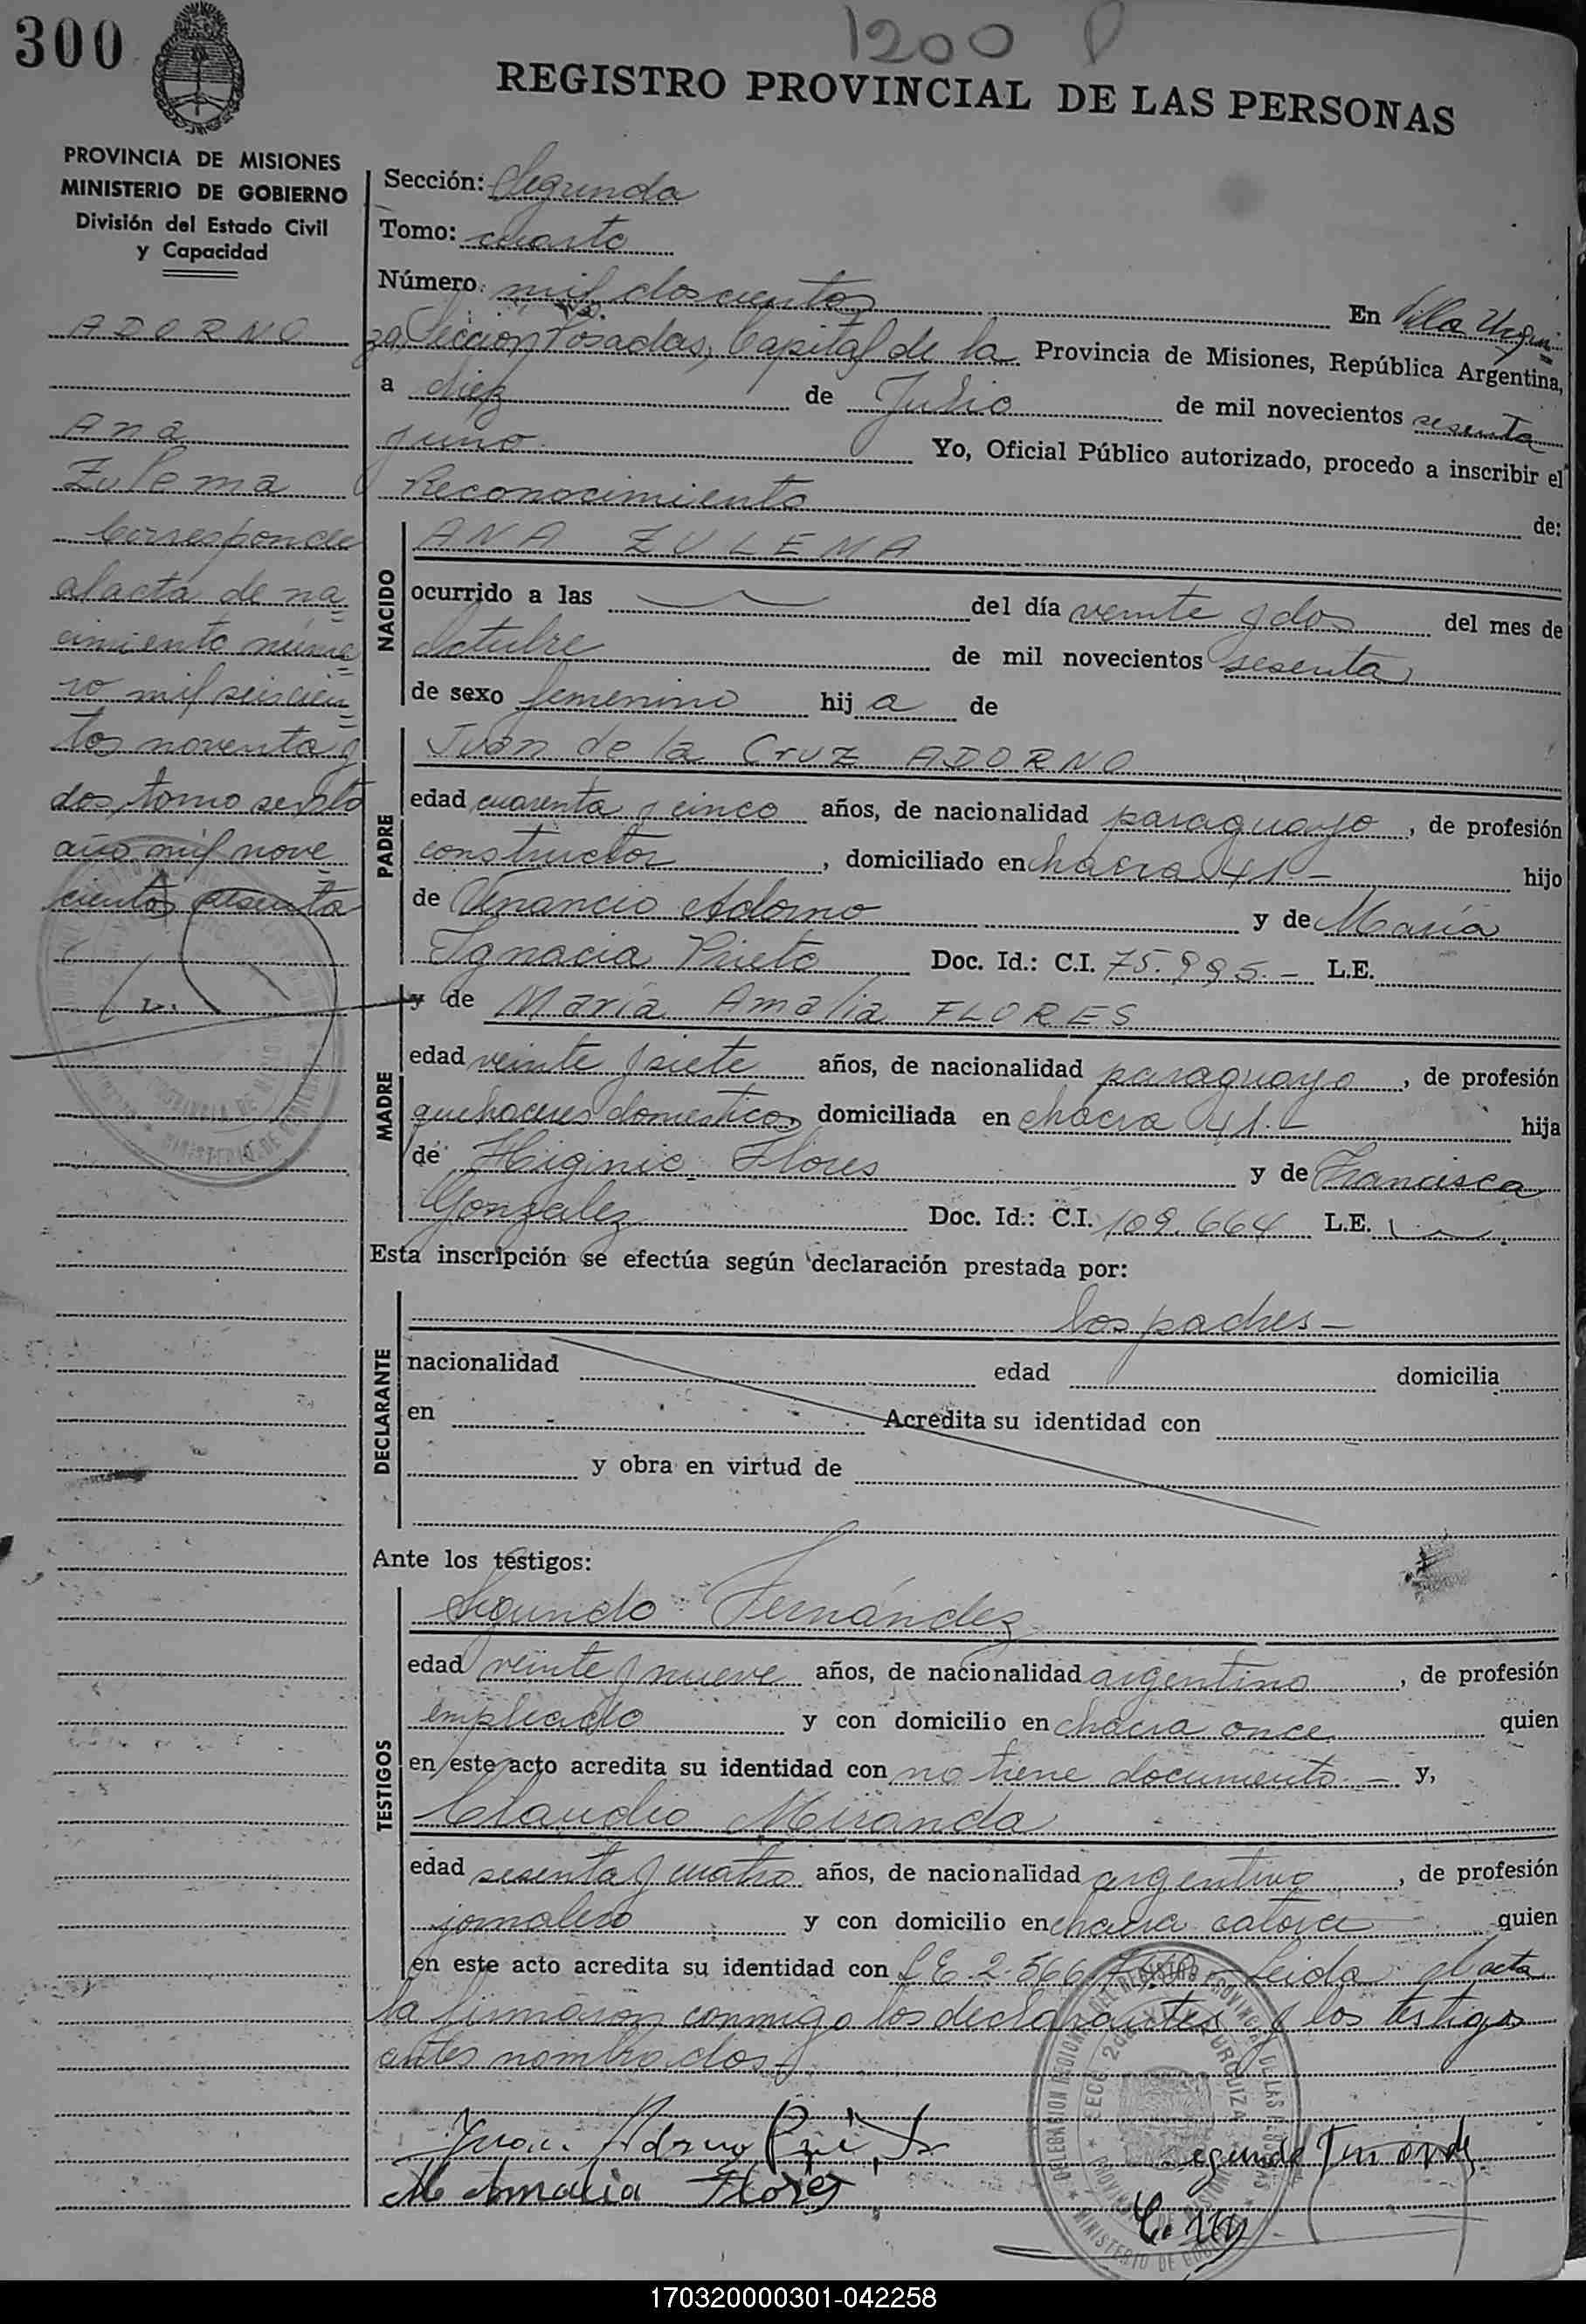 300
1200
REGISTRO PROVINCIAL DE LAS PERSONAS
PROVINCIA DE MISIONES
MINISTERIO DE GOBIERNO
División del Estado Civil
y Capacidad
ADORNO
Ana
Zulema
Corresponde
al acta de na=
cimiento núme=
ro mil seiscien=
tos noventa y
dos, tomo sexto
año mil nove=
cientos sesenta
Sección: Segunda
Tomo: cuarto
Número: mil doscientos En Villa Urqui=
za Sección Posadas, Capital de la Provincia de Misiones, República Argentina,
a diez de Julio de mil novecientos sesenta
y uno. Yo, Oficial Público autorizado, procedo a inscribir el
Reconocimiento de:
NACIDO
ANA ZULEMA
ocurrido a las del día veinte y dos del mes de
Octubre de mil novecientos sesenta
de sexo femenino hij a de
PADRE
Juan de la Cruz ADORNO
edad cuarenta y cinco años, de nacionalidad paraguayo, de profesión
constructor, domiciliado en chacra 41 - hijo
de Venancio Adorno y de María
Ignacia Prieto Doc. Id.: C.I. 75.995.- L.E.
MADRE
y de María Amalia FLORES
edad veinte y siete años, de nacionalidad paraguaya, de profesión
quehaceres domesticos domiciliada en chacra 41.- hija
de Higinio Flores y de Francisca
Gonzalez Doc. Id.: C.I. 109.664 L.E.
Esta inscripción se efectúa según declaración prestada por:
DECLARANTE
los padres -
nacionalidad edad domicilia
en Acredita su identidad con
y obra en virtud de
Ante los testigos:
TESTIGOS
Segundo Fernández
edad veinte y nueve años, de nacionalidad argentino, de profesión
empleado y con domicilio en chacra once quien
en este acto acredita su identidad con no tiene documento - y,
Claudio Miranda
edad sesenta y cuatro años, de nacionalidad argentino, de profesión
jornalero y con domicilio en chacra catorce quien
en este acto acredita su identidad con LE 2.566. Leida el acta
la firmaron conmigo los declarantes y los testigos
antes nombrados.-
Juan Adorno Prieto
M Amalia Flores
170320000301-042258